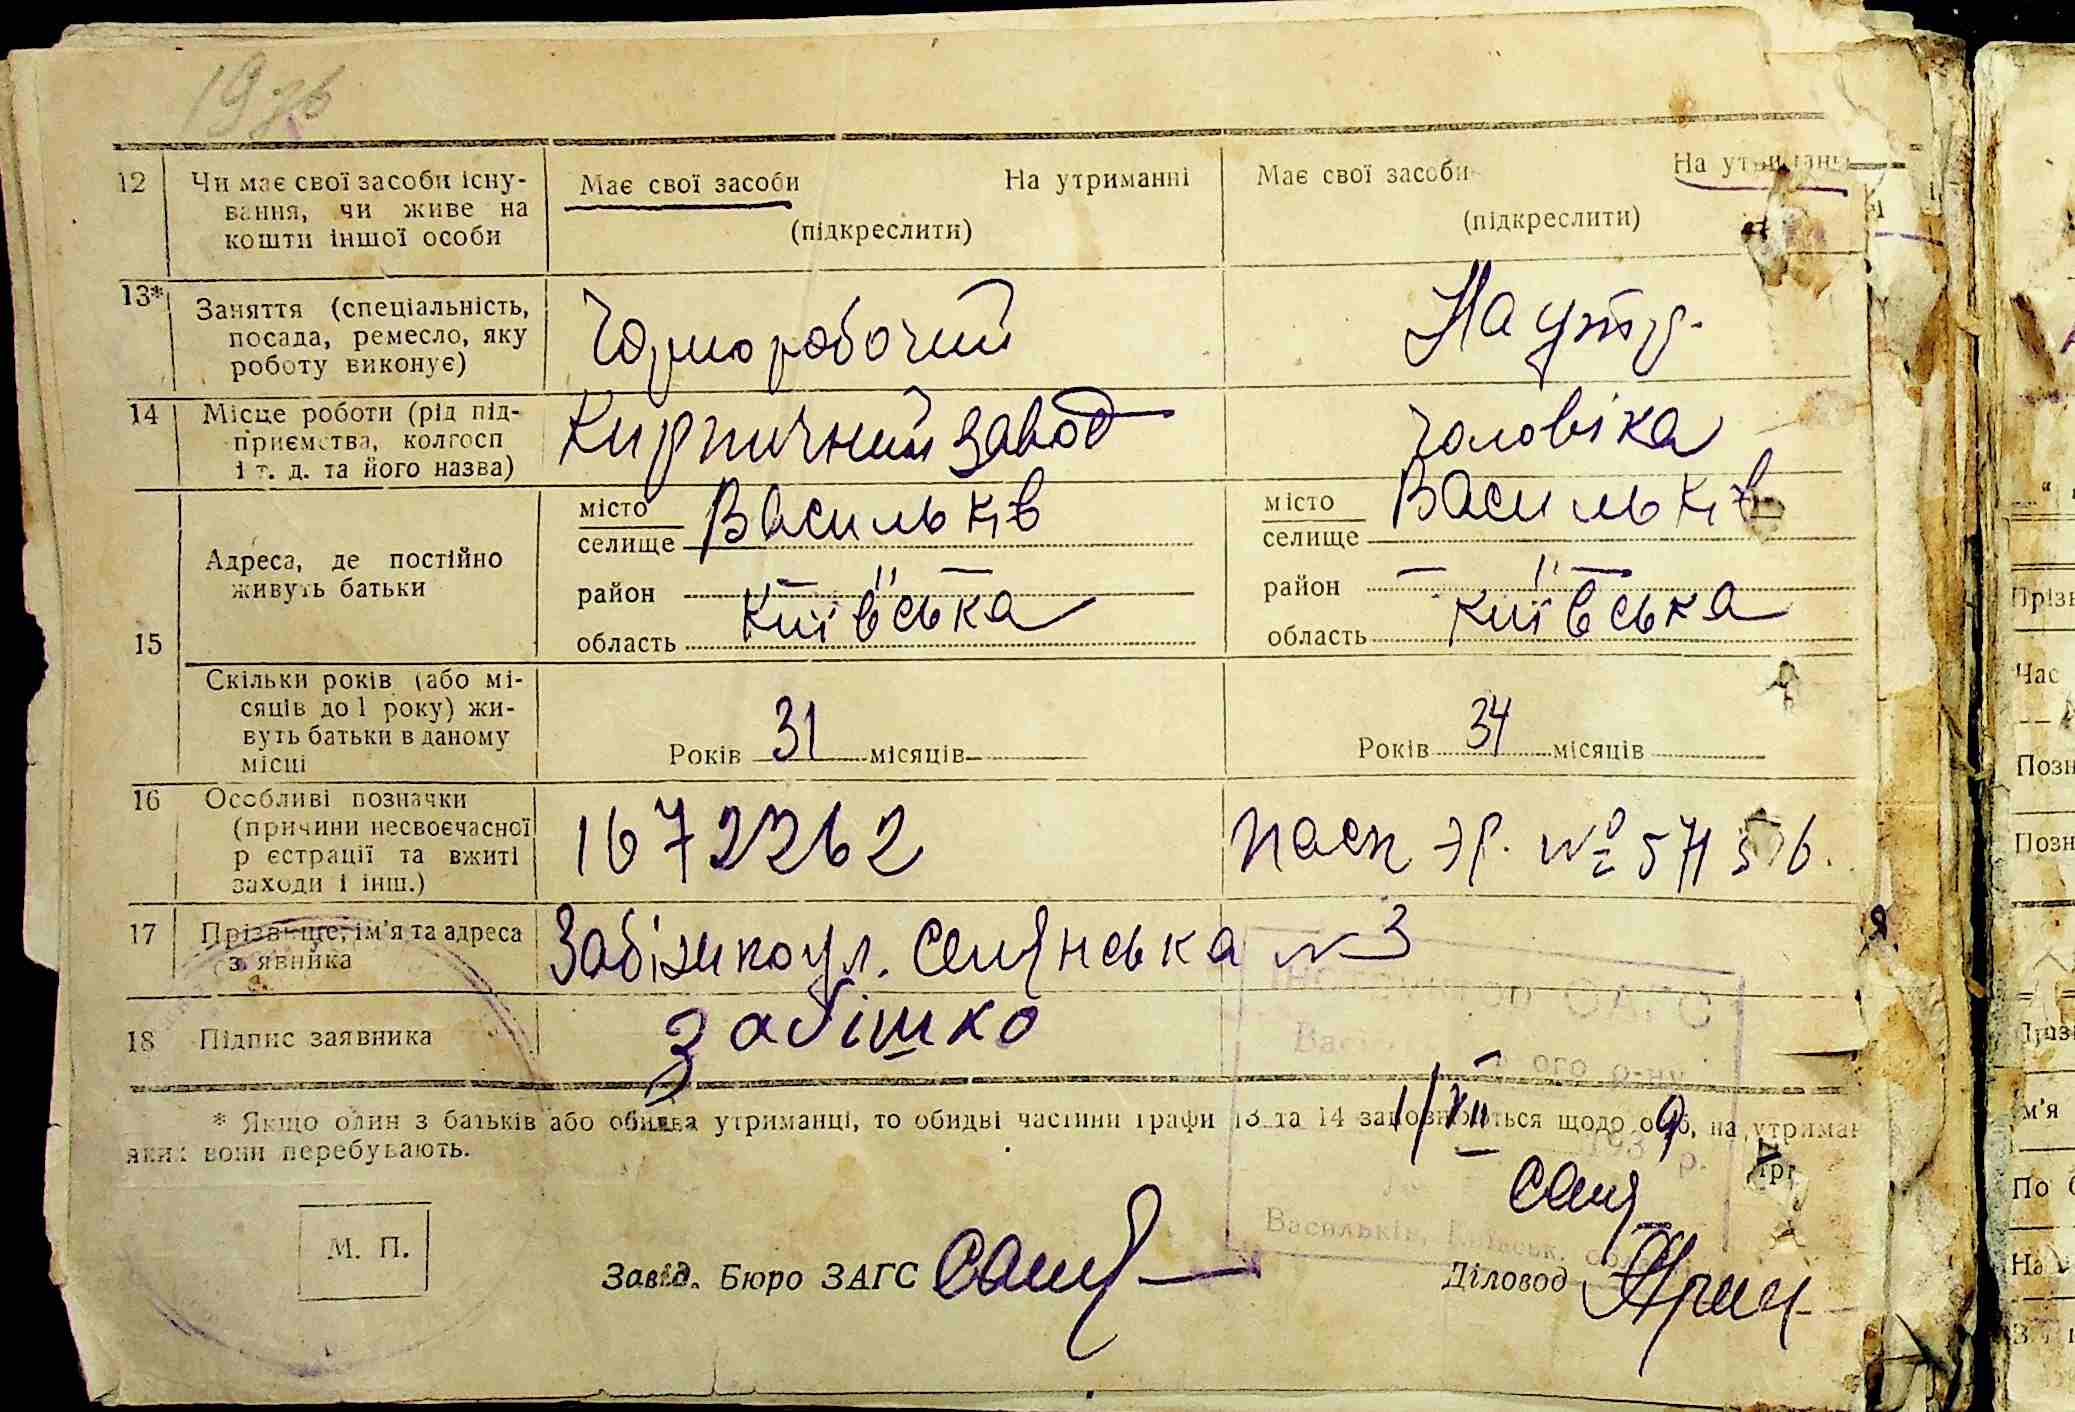 12 Чи має свої засоби існу-
вання, чи живе на
кошти іншої особи
Має свої засоби На утриманні
(підкреслити)
Має свої засоби На утриманні
(підкреслити)
13* Заняття (спеціальність,
посада, ремесло, яку
роботу виконує)
Чорноробочий
На утр.
14 Місце роботи (рід під-
приємства, колгосп
і т. д. та його назва)
Кирпичний завод
чоловіка
15 Адреса, де постійно
живуть батьки
місто
селище Васильків
район — " —
область Київська
місто
селище Васильків
район — " —
область Київська
Скільки років (або мі-
сяців до 1 року) жи-
вуть батьки в даному
місці
Років 31 місяців
Років 34 місяців
16 Особливі позначки
(причини несвоєчасної
реєстрації та вжиті
заходи і інш.)
1672262
пасп №
17 Прізвище, ім'я та адреса
заявника
Забішко ул. Селянська № 3
18 Підпис заявника
Забішко
* Якщо один з батьків або обидва утриманці, то обидві частини графи 13 та 14 заповнюються щодо осіб, на утриман
яких вони перебувають.
1/XII 9
193 р.
Васильків, Київськ.
М. П.
Завід. Бюро ЗАГС
Діловод